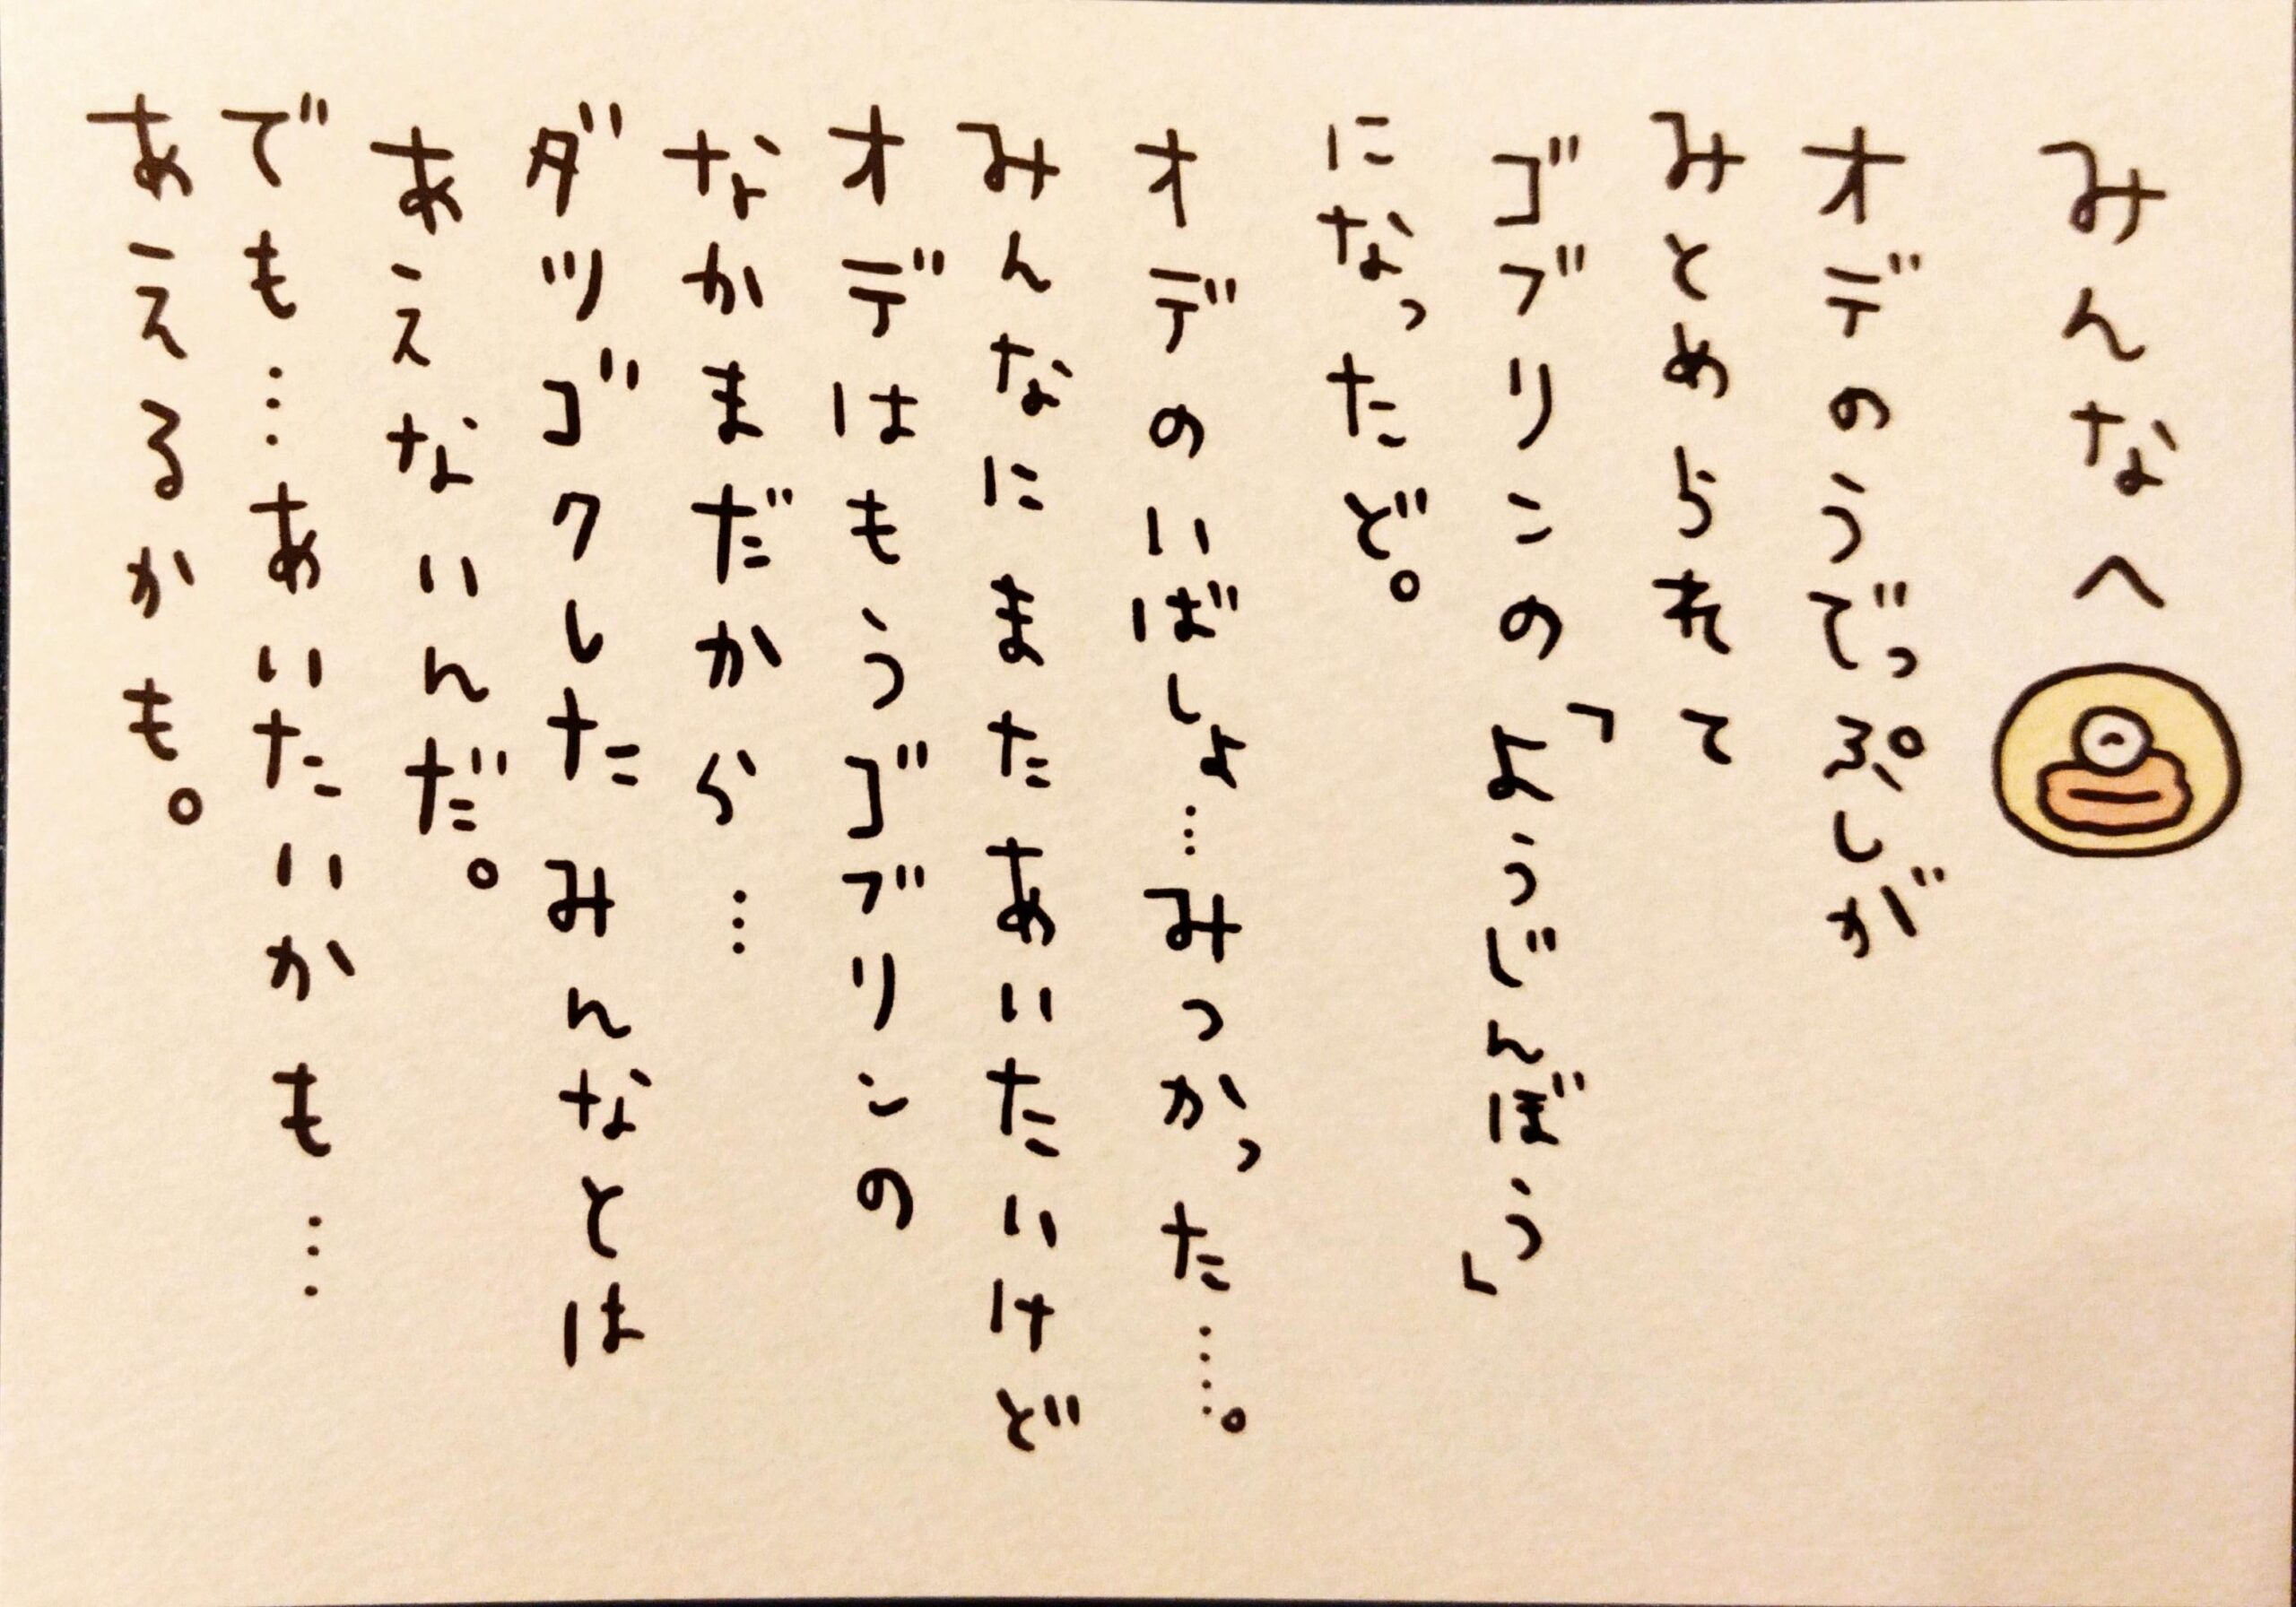 みんなへ
オデのうでっぷしが
みとめられて
ゴブリンの「よういんぼう」
になったど。
オデのいばしょ…みつかった……。
みんなにまたあいたいけど
オデはもうゴブリンの
なかまだから…
ダツゴクしたみんなとは
あえないんだ。
でも…あいたいかも…
あえるかも。